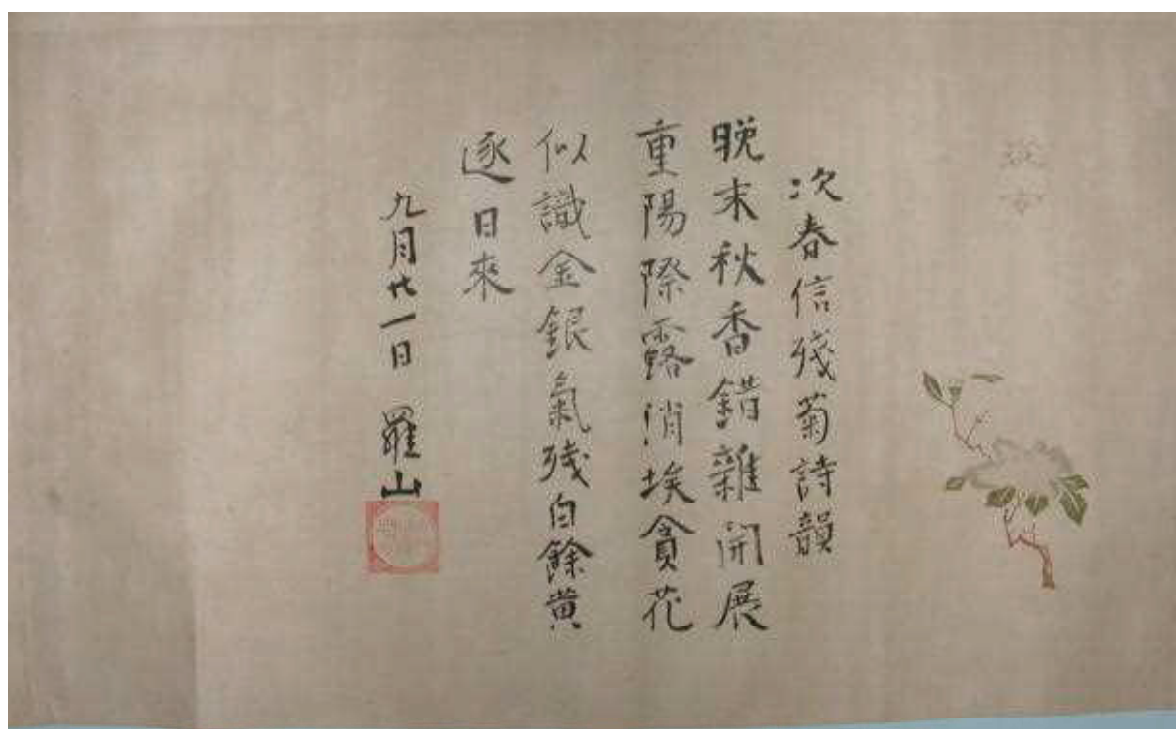 次春信殘菊詩韻
晚末秋香錯雜開展
重陽際露消埃貪花
似識金銀氣残白餘黄
逐日來
九月廿一日 羅山